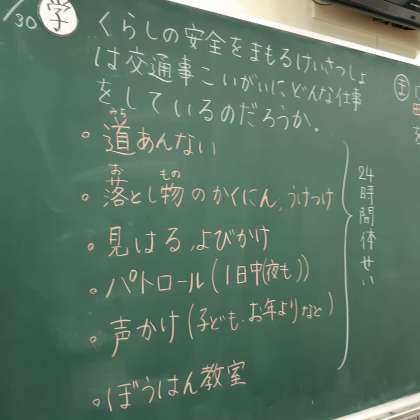 /30 学 くらしの安全をまもるけいさつしょ
は交通事こいがいに、どんな仕事
をしているのだろうか。
。道あんない
みち
。落とし物のかくにん、うけつけ
お もの
。見はる、よびかけ
。パトロール(1日中(夜も))
。声かけ(子ども、お年よりなど)
。ぼうはん教室
24時間体せい
ま